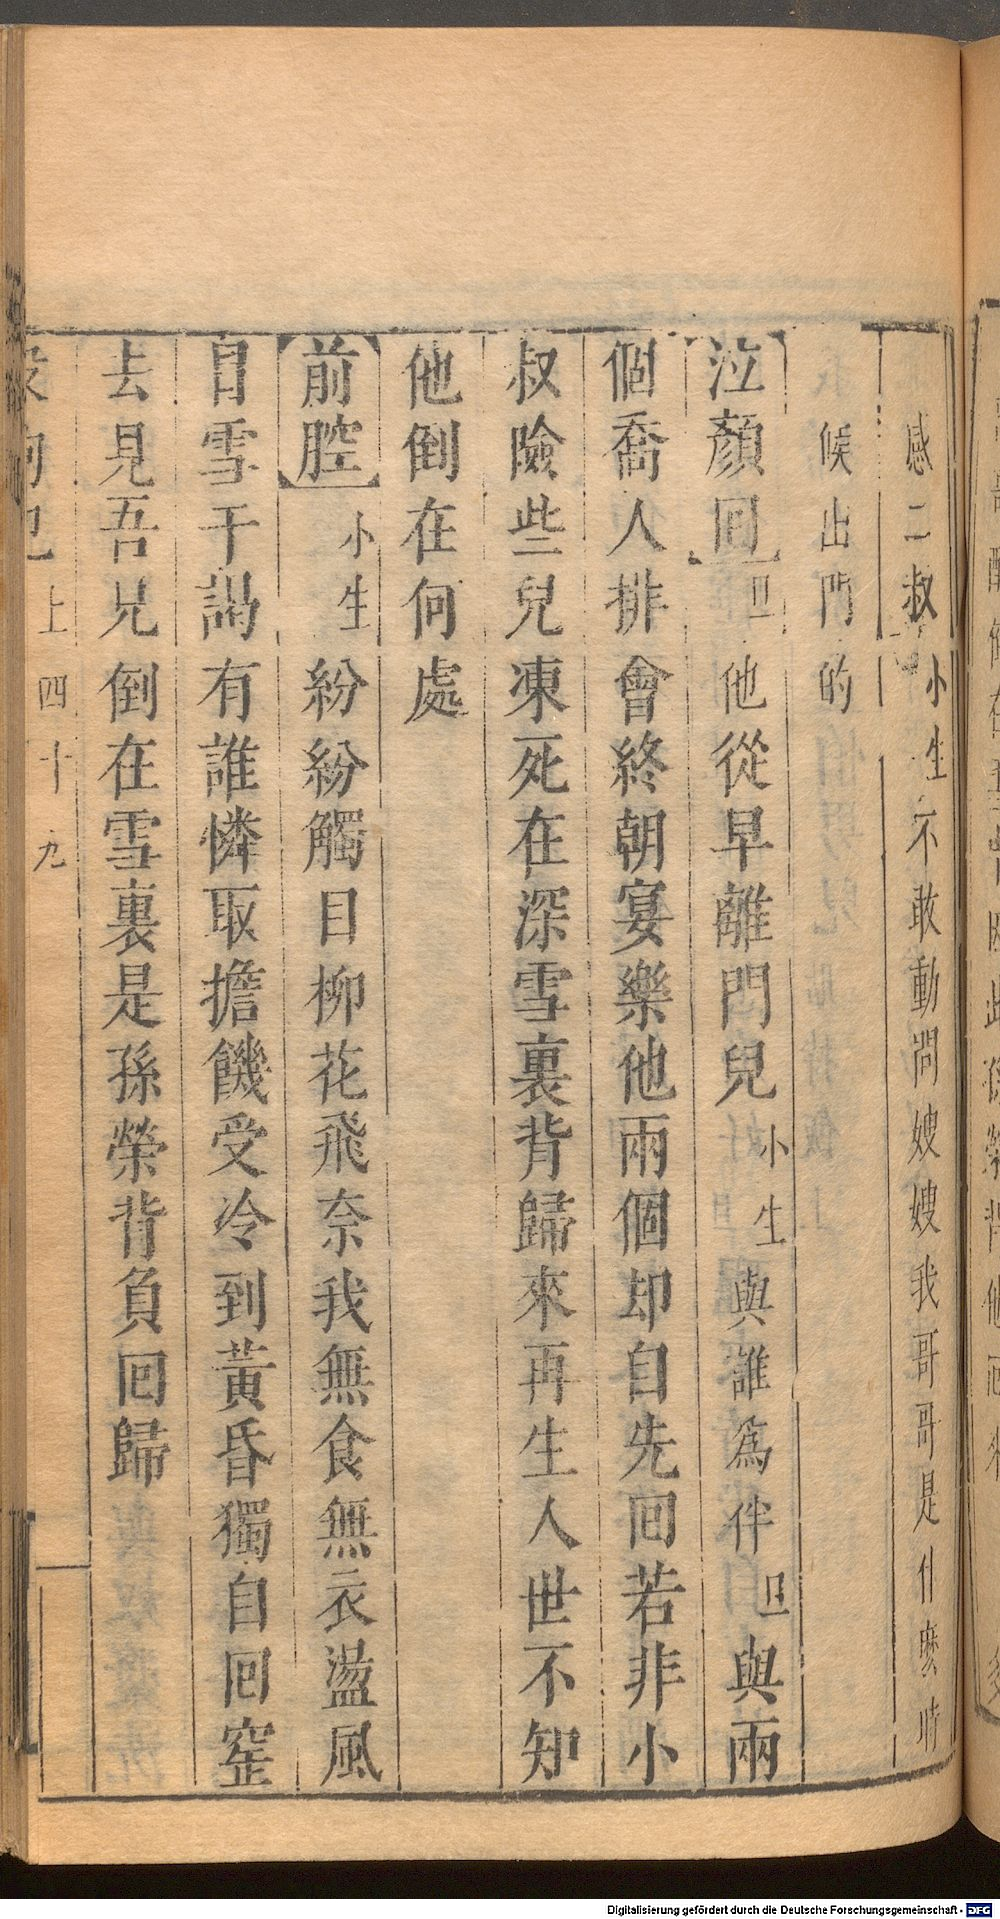 感二叔小生不敢動問嫂嫂我哥哥是什麼時
候出門的
泣顏回旦他從早離門兒小生與誰為伴旦與兩
個喬人排會終朝宴樂他兩個却自先回若非小
叔險些兒凍死在深雪裏背歸來再生人世不知
他倒在何處
前腔小生紛紛觸目柳花飛奈我無食無衣盪風
冒雪干謁有誰憐取擔饑受冷到黃昏獨自回窰
去見吾兄倒在雪裏是孫榮背負回歸
殺狗記上四十九
Digitalisierung gefördert durch die Deutsche Forschungsgemeinschaft - DFG